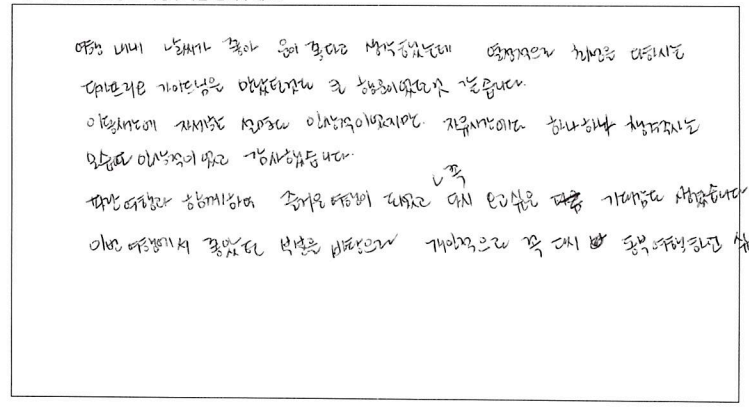 여행 내내 날씨가 좋아 운이 좋다고 생각했는데 열정적으로 최선을 다하시는
가이드님을 만났던것도 큰 행운이었던것 같습니다.
이동시간에 자세한 설명도 인상적이었지만 자유시간에도 하나하나 챙겨주시는
모습도 인상적이었고 감사했습니다.
여행과 함께하여 즐거운 여행이 되었고 꼭 다시 오고싶은 기대감도 생겼습니다
이번 여행에서 좋았던 부분을 바탕으로 개인적으로 꼭 다시 동부여행하고